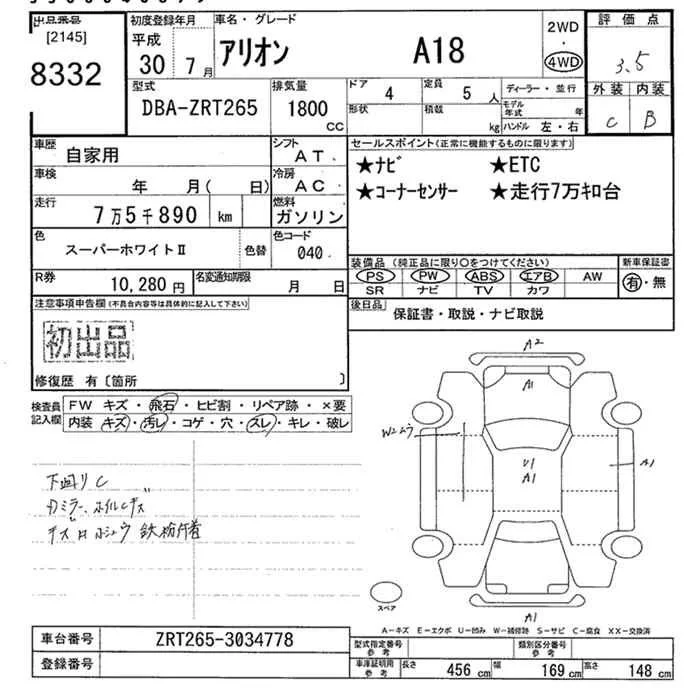 出品番号
[2145]
8332
初度登録年月
平成
30 7月
車名・グレード
アリオン A18
2WD
・
4WD
評価点
3.5
外装 内装
C B
型式
DBA-ZRT265
排気量
1800
CC
ドア 4
定員 5人
形状
積載 kg
ディーラー・並行
モデル年式 年
ハンドル 左・右
車歴 自家用
シフト AT
車検 年 月( 日)
冷房 AC
走行 7万5千890 km
燃料 ガソリン
色 スーパーホワイトⅡ 色替
色コード 040
R券 10,280円
名変通知期限 月 日
セールスポイント(正常に機能するものに限ります)
★ナビ ★ETC
★コーナーセンサー ★走行7万キロ台
装備品(純正品に限り○をつけてください)
PS PW ABS エアB AW
SR ナビ TV カワ
新車保証書
有・無
後日品 保証書・取説・ナビ取説
注意事項申告欄(不具合内容等は具体的に記入して下さい)
初出品
修復歴 有〔箇所 〕
検査員記入欄
FW キズ・飛石・ヒビ割・リペア跡・×要
内装 キズ・汚レ・コゲ・穴・スレ・キレ・破レ
下回りC
鉄粉付着
A2
A1
U1
A1
A1
A1
スペア
A-キズ E-エクボ U-凹み W-補修跡 S-サビ C-腐食 XX-交換済
車台番号 ZRT265-3034778
登録番号
型式指定番号 参考
類別区分番号 参考
車庫証明用 参考
長さ 456cm 幅 169cm 高さ 148cm